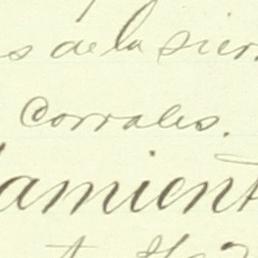 s de la sier
Corrales.
amient